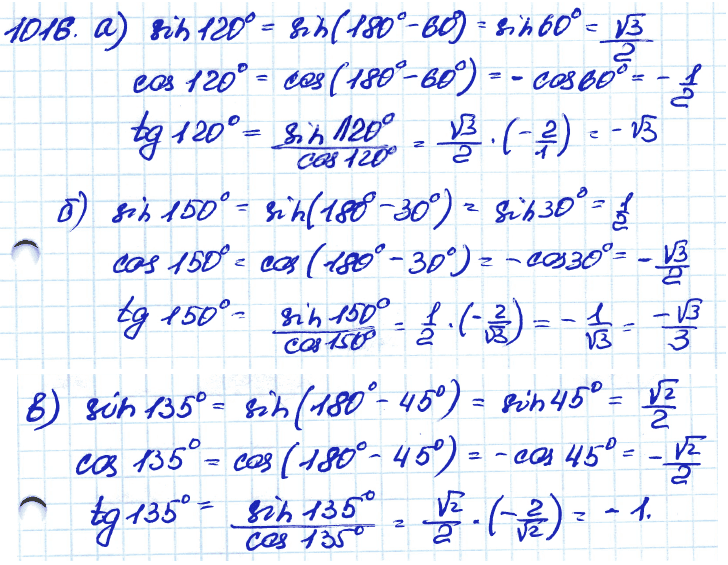 1016. а) sin 120° = sin(180° - 60°) = sin 60° = √3/2
cos 120° = cos(180° - 60°) = - cos 60° = - 1/2
tg 120° = sin 120°/cos 120° = √3/2 · (- 2/1) = - √3
б) sin 150° = sin(180° - 30°) = sin 30° = 1/2
cos 150° = cos(180° - 30°) = - cos 30° = - √3/2
tg 150° = sin 150°/cos 150° = 1/2 · (- 2/√3) = - 1/√3 = -√3/3
в) sin 135° = sin(180° - 45°) = sin 45° = √2/2
cos 135° = cos(180° - 45°) = - cos 45° = - √2/2
tg 135° = sin 135°/cos 135° = √2/2 · (- 2/√2) = - 1.